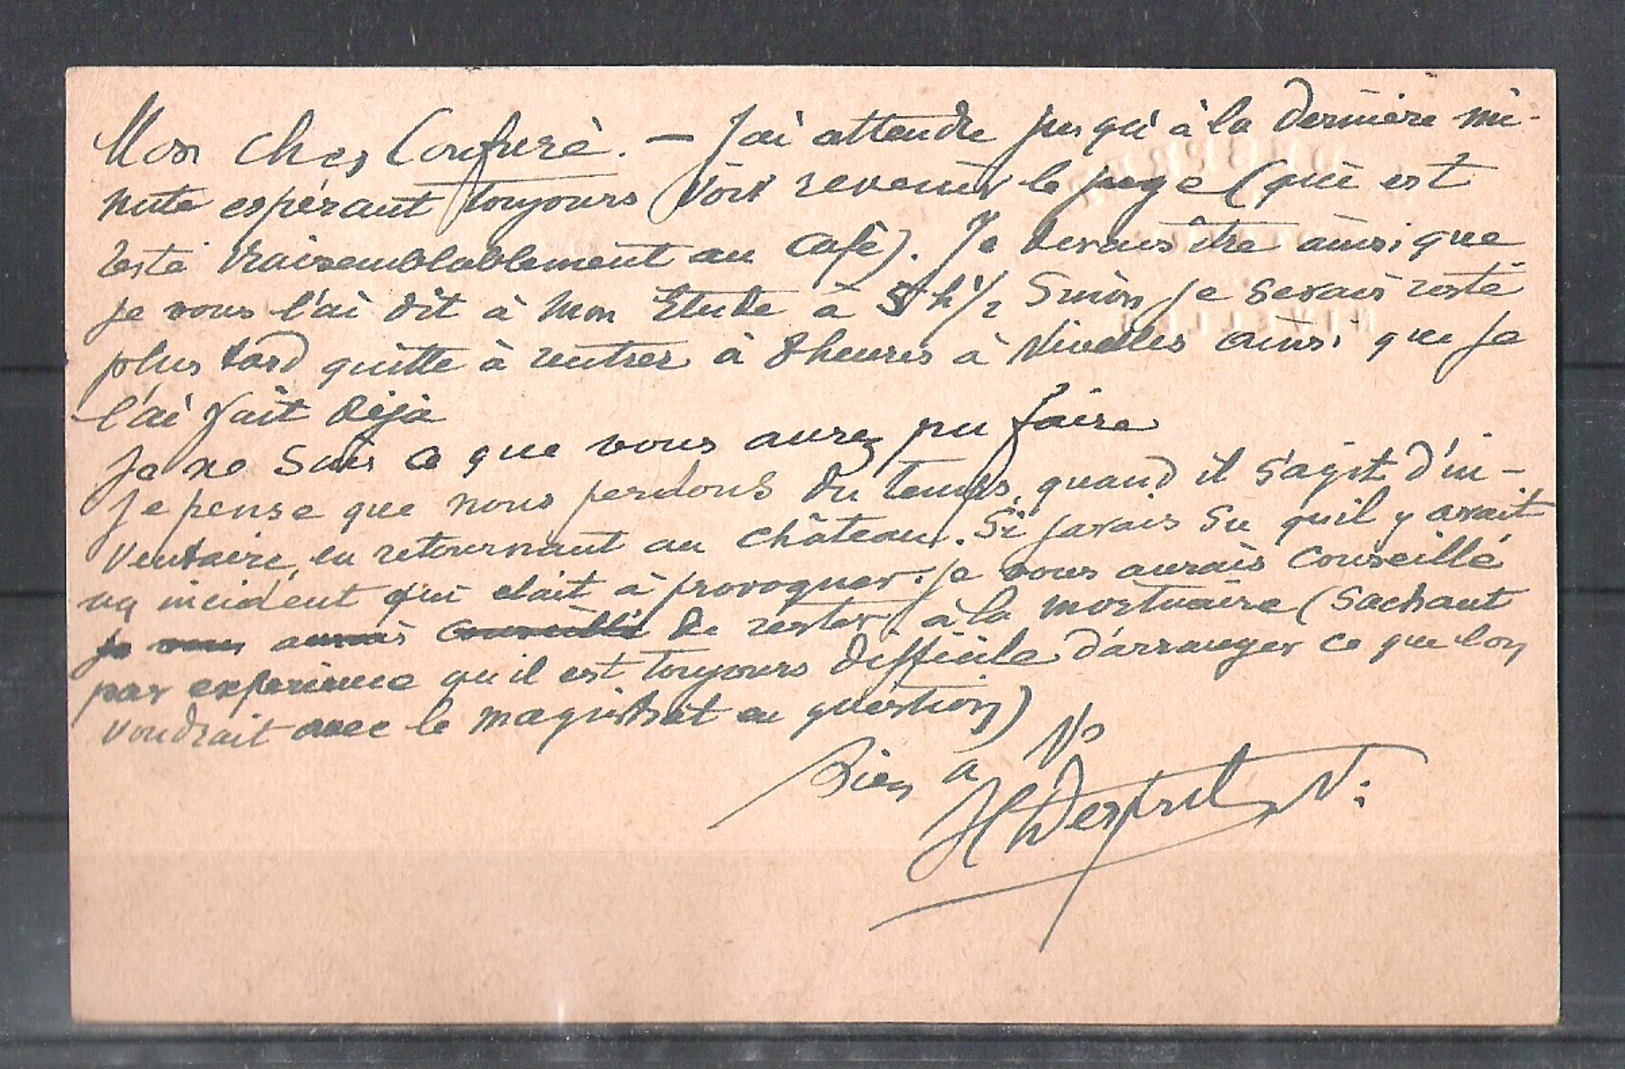 Mon cher Confrère. — J'ai attendu jusqu'à la dernière mi-
nute espérant toujours voir revenir le juge (qui est
resté vraisemblablement au Café). Je devais être ainsi que
je vous l'ai dit à Mon Etude à 5 h 1/2 Sinon je serais resté
plus tard quitte à rentrer à 8 heures à Nivelles ainsi que je
l'ai fait déjà
Je ne sais ce que vous aurez pu faire
Je pense que nous perdons du temps, quand il s'agit d'in-
ventaire, en retournant au château. Si j'avais su qu'il y avait
un incident qui était à provoquer. je vous aurais conseillé
je vous aurais conseillé de rester à la mortuaire (Sachant
par expérience qu'il est toujours difficile d'arranger ce que l'on
voudrait avec le magistrat en question)
Bien à Vs